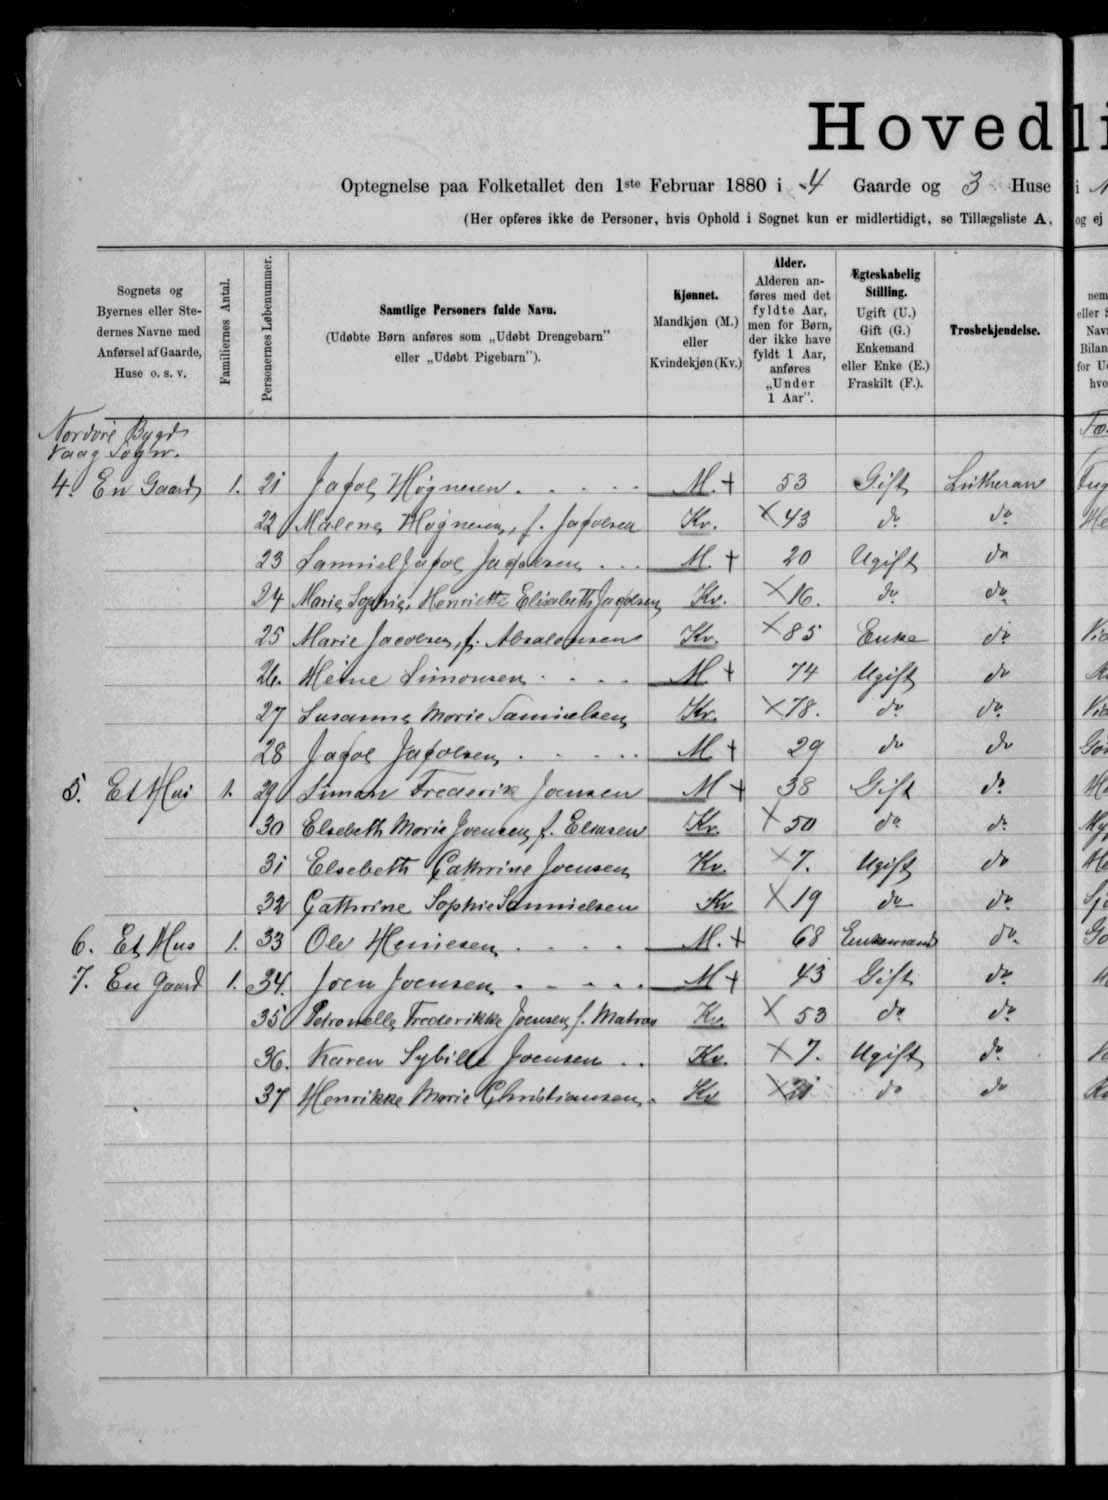 Hovedli
Optegnelse paa Folketallet den 1ste Februar 1880 i 4 Gaarde og 3 Huse i
(Her opføres ikke de Personer, hvis Ophold i Sognet kun er midlertidigt, se Tillægsliste A, og ej
Sognets og Byernes eller Ste-
dernes Navne med
Anførsel af Gaarde,
Huse o. s. v.
Familiernes Antal.
Personernes Løbenummer.
Samtlige Personers fulde Navn.
(Udøbte Børn anføres som „Udøbt Drengebarn"
eller „Udøbt Pigebarn").
Kjønnet.
Mandkjøn (M.)
eller
Kvindekjøn (Kv.)
Alder.
Alderen an-
føres med det
fyldte Aar,
men for Børn,
der ikke have
fyldt 1 Aar,
anføres
„Under
1 Aar".
Ægteskabelig
Stilling.
Ugift (U.)
Gift (G.)
Enkemand
eller Enke (E.)
Fraskilt (F.).
Trosbekjendelse.
Bygd
Vaag Sogn.
4. En Gaard 1. 21 Jacob Høgnesen M. + 53 Gift Lutheran
22 Malene Høgnesen, f. Jacobsen Kv. × 43 do do
23 Samuel Jacob Jacobsen M. + 20 Ugift do
24 Marie Sophie Henriette Elisabeth Jacobsen Kv. × 16. do do
25 Marie Jacobsen, f. Absalonsen Kv. × 85 Enke do
26. Heine Simonsen M + 74 Ugift do
27 Susanna Marie Samuelsen Kv. × 78. do do
28 Jacob Jacobsen M + 29 do do
5. Et Hus 1. 29 Simon Frederik Joensen M + 38 Gift do
30 Elsebeth Marie Joensen, f. Eliasen Kv × 50 do do
31 Elsebeth Cathrine Joensen Kv. × 7. Ugift do
32 Cathrine Sophie Samuelsen Kv × 19 do do
6. Et Hus 1. 33 Ole M. + 68 Enkemand do
7. En Gaard 1. 34. Joen Joensen M + 43 Gift do
35 Petronelle Frederikke Joensen f. Matras Kv. × 53 do do
36. Karen Sybille Joensen Kv. × 7. Ugift do
37 Henrikke Marie Christiansen Kv × 21 do do